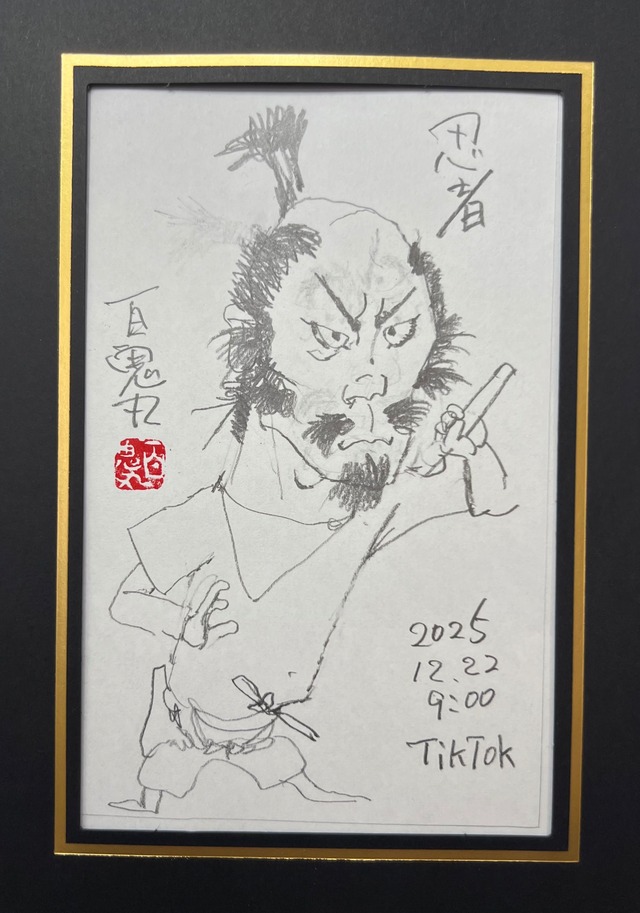 忍者
百鬼丸
2025
12.22
9:00
TikTok